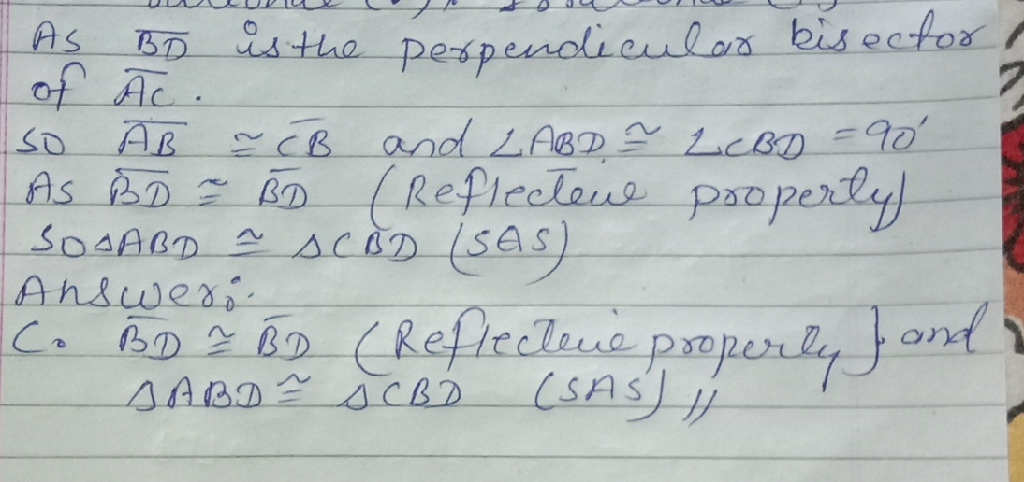 As BD is the perpendicular bisector
of AC.
SO AB ≅ CB and ∠ABD ≅ ∠CBD = 90°
As BD ≅ BD (Reflecteve property)
SO △ABD ≅ △CBD (SAS)
Answer:-
C. BD ≅ BD (Reflecteve property} and
△ABD ≅ △CBD (SAS) //